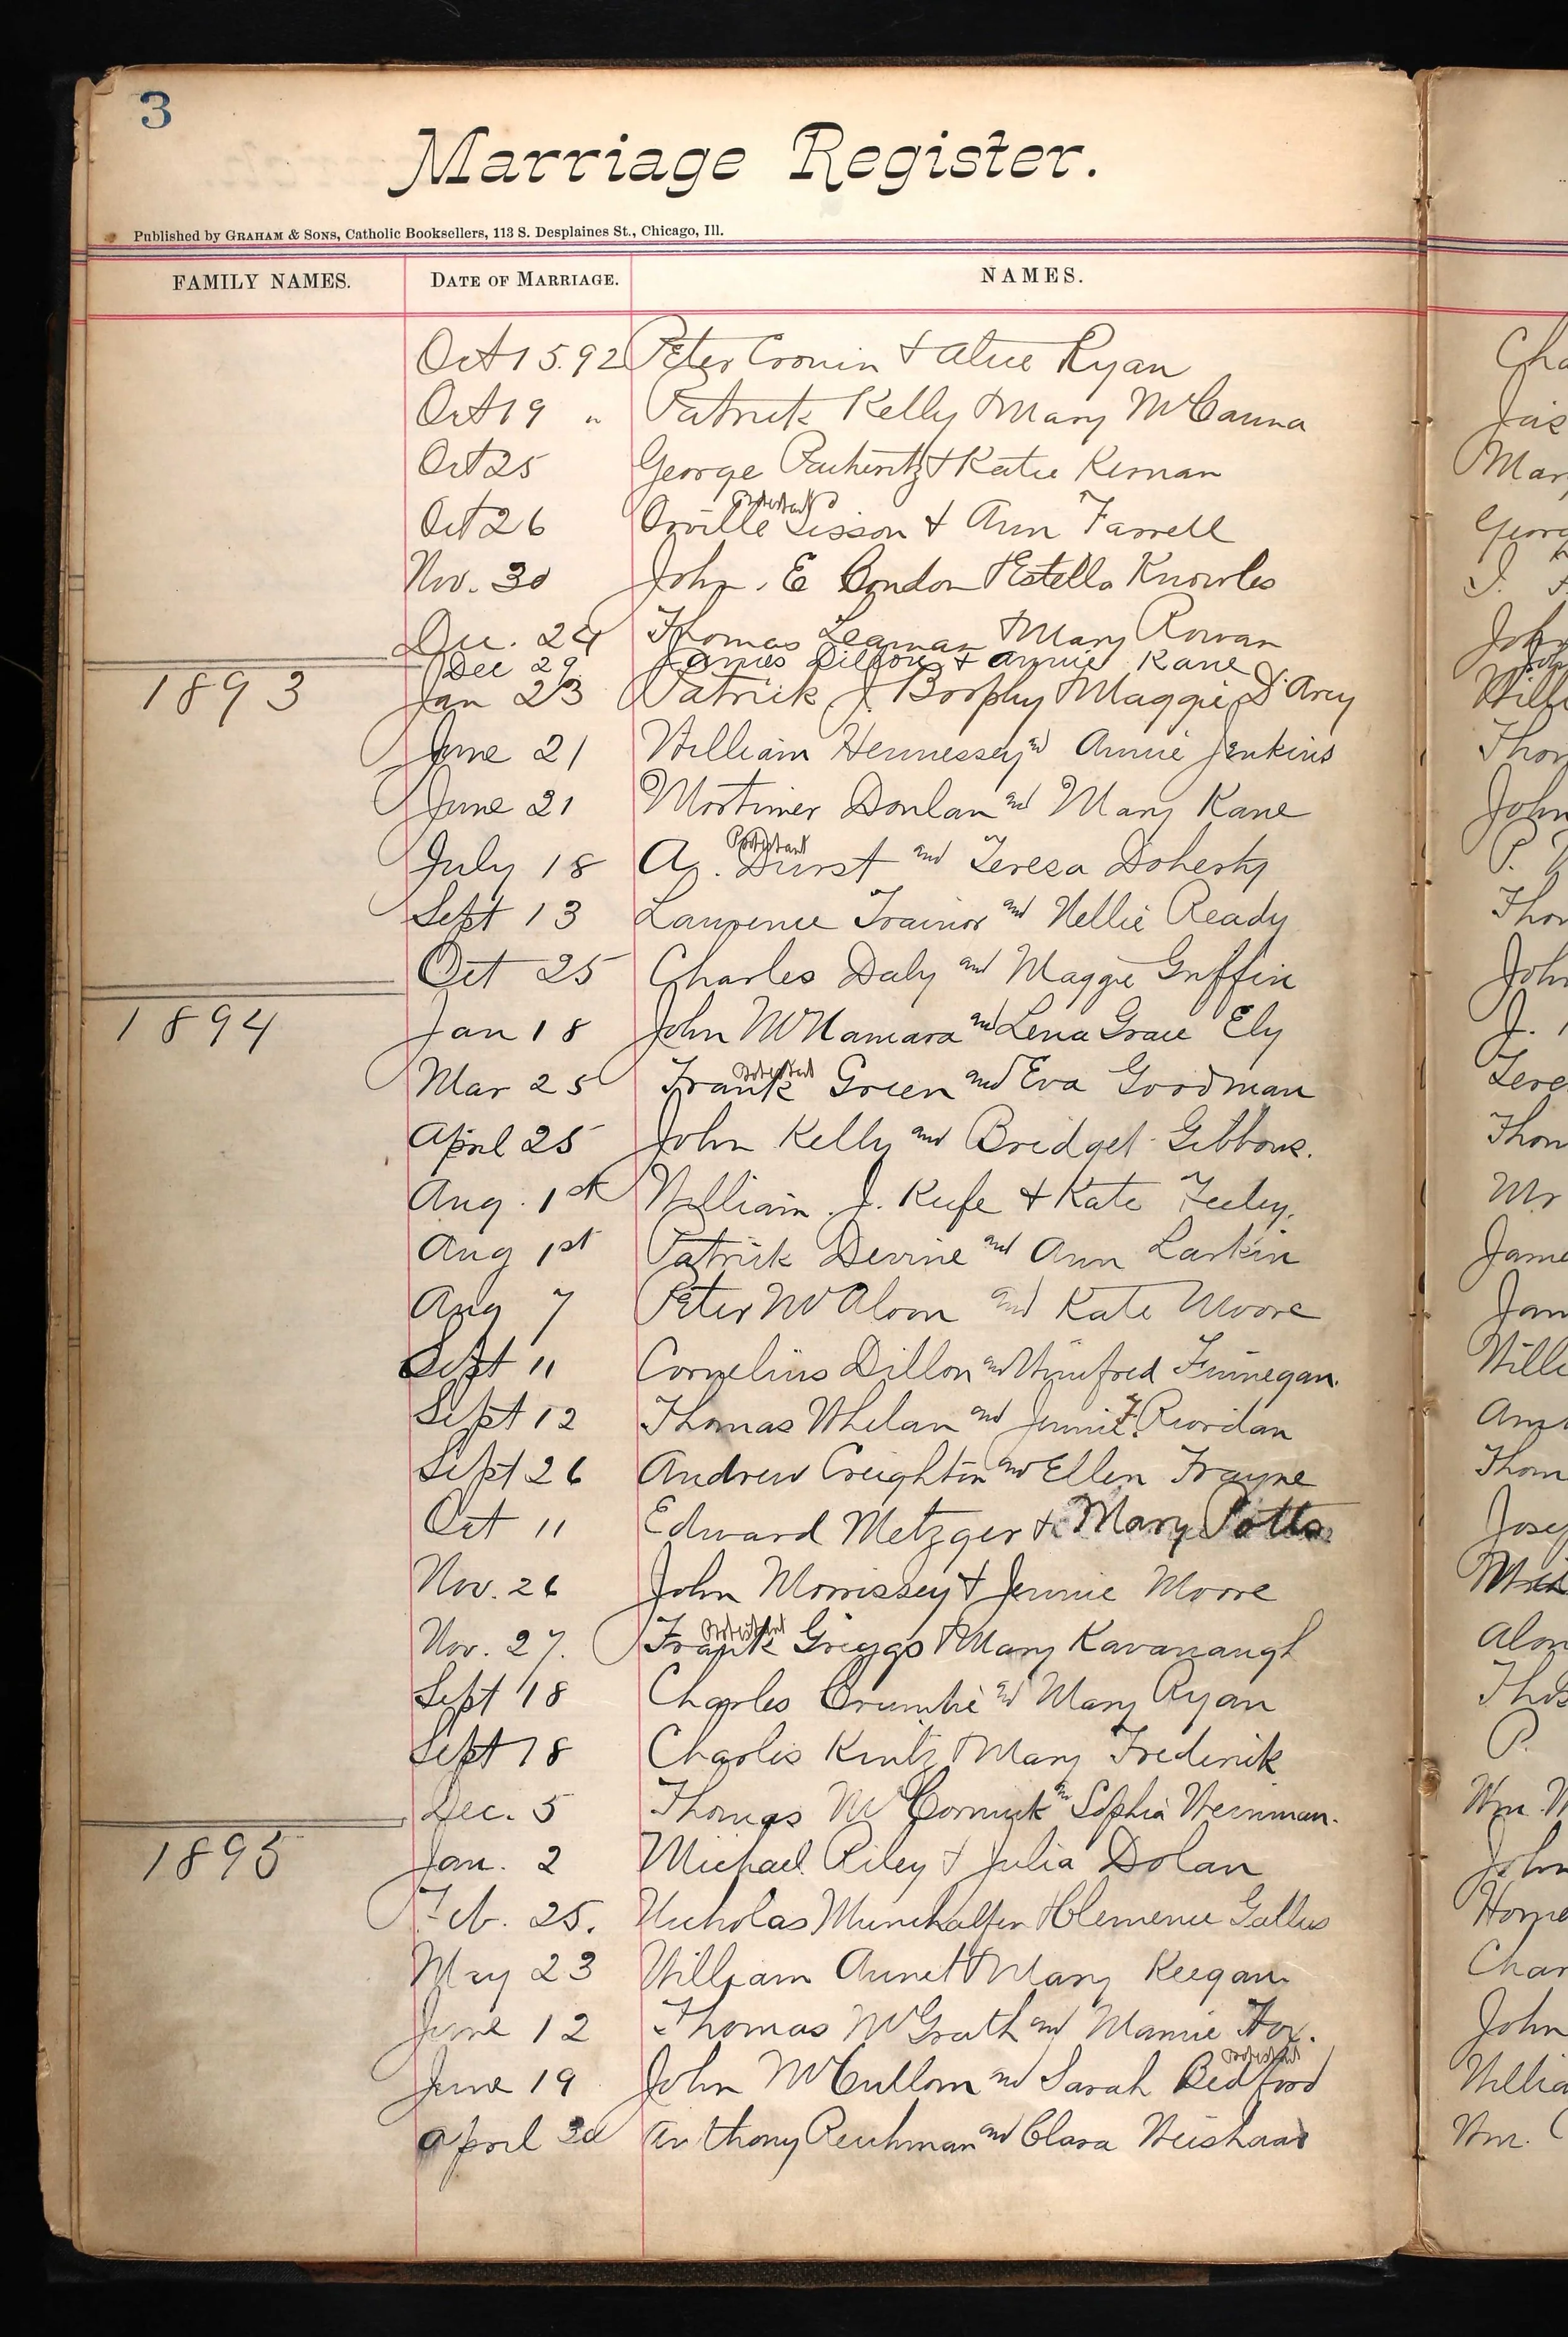 3
Marriage Register.
Published by GRAHAM & SONS, Catholic Booksellers, 113 S. Desplaines St., Chicago, Ill.
FAMILY NAMES. DATE OF MARRIAGE. NAMES.
Oct 15. 92 Peter Cronin & Alice Ryan
Oct 19 " Patrick Kelly & Mary McCanna
Oct 25 George & Katie Kernan
Protestant
Oct 26 Orville Sisson & Ann Farrell
Nov. 30 John. E Condon & Estella Knowles
Dec. 24 Thomas Leaman & Mary Rowan
Dec 29 James Dillon & Annie Kane
1893 Jan 23 Patrick J Brophy & Maggie D'Arcy
June 21 William Hennessey and Annie Jenkins
June 21 Mortimer Donlan and Mary Kane
Protestant
July 18 A. Durst and Teresa Doherty
Sept 13 Laurence Trainor and Nellie Ready
Oct 25 Charles Daly and Maggie Griffin
1894 Jan 18 John McNamara and Lena Grace Ely
Protestant
Mar 25 Frank Green and Eva Goodman
April 25 John Kelly and Bridget Gibbons.
Aug. 1st William. J. Keefe & Kate Feeley.
Aug 1st Patrick Devine and Ann Larkin
Aug 7 Peter McAloon and Kate Moore
Sept 11 Cornelius Dillon and Winifred Finnegan.
Sept 12 Thomas Whelan and Jennie F. Riordan
Sept 26 Andrew Creighton and Ellen Frayne
Oct 11 Edward Metzger & Mary Potts
Nov. 26 John Morrissey & Jennie Moore
Protestant
Nov. 27. Frank Griggs & Mary Kavanaugh
Sept 18 Charles Crumbie and Mary Ryan
Sept 18 Charles Kintz & Mary Frederick
Dec. 5 Thomas McCormick and Sophia Weinman.
1895 Jan. 2 Michael Riley & Julia Dolan
Feb. 25. Nicholas & Clemence Gallus
May 23 William & Mary Keegan
June 12 Thomas McGrath and Mamie Fox.
Protestant
June 19 John McCullom and Sarah Bedford
April 30 Anthony Reichman and Clara Weishaar